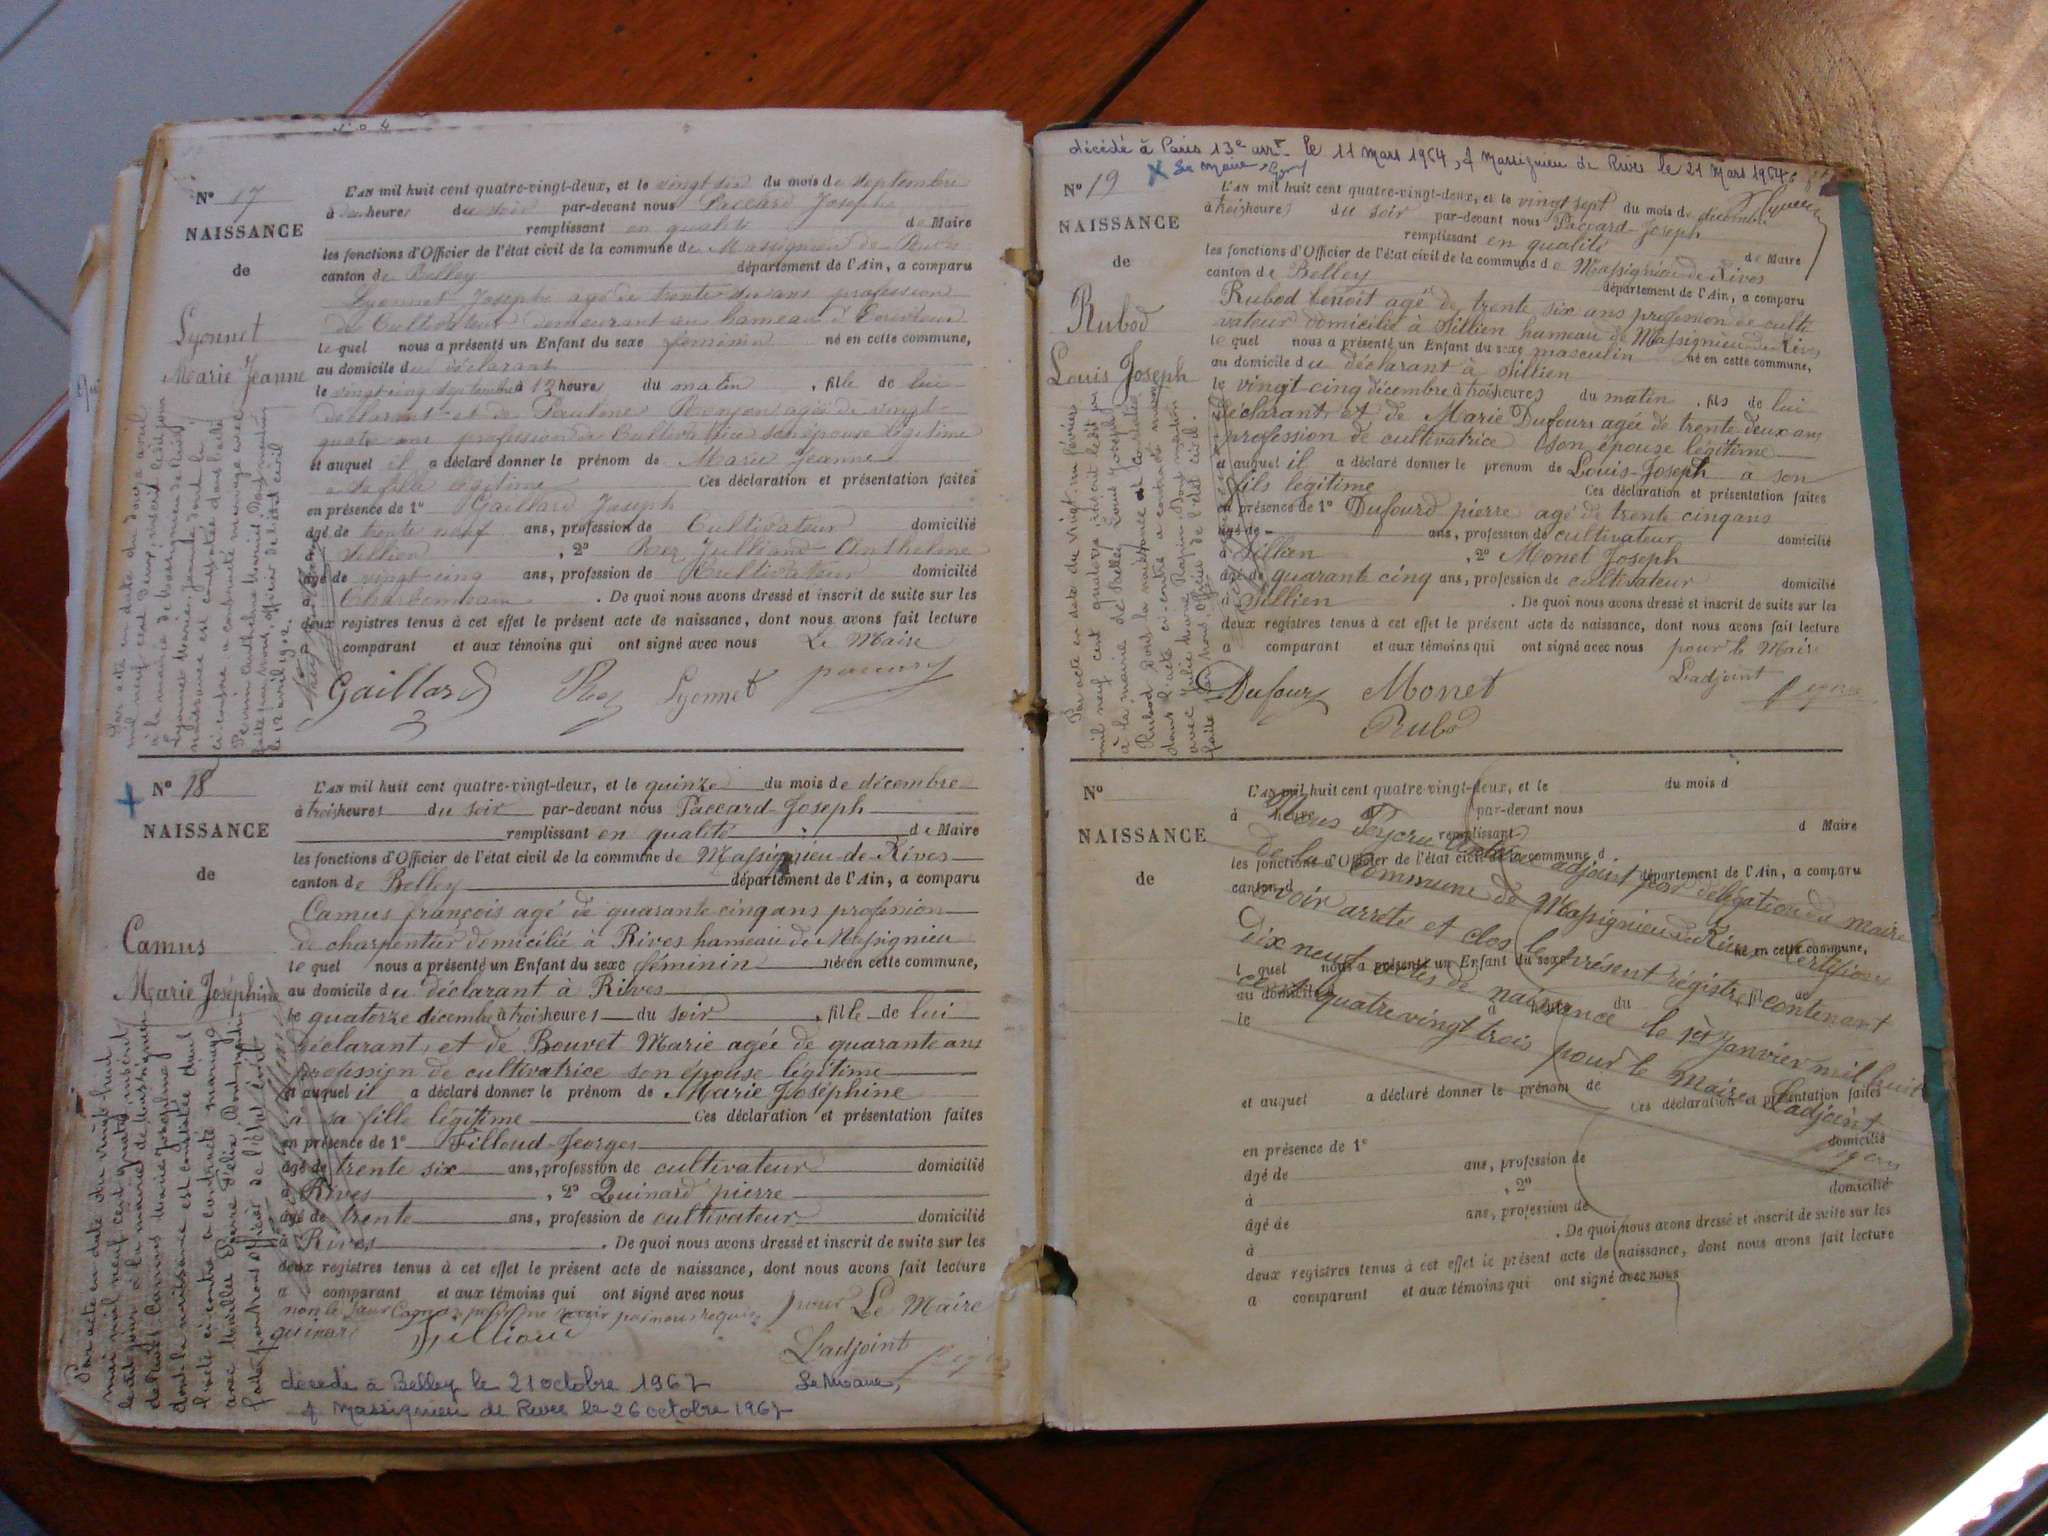 N° 17
NAISSANCE
de
Lyonnet
Marie Jeanne
L'AN mil huit cent quatre-vingt-deux, et le vingt six du mois de septembre
à heures du soir par-devant nous Paccard Joseph
remplissant en qualité de Maire
les fonctions d'Officier de l'état civil de la commune de Massignieu de Rives
canton de Belley département de l'Ain, a comparu
Lyonnet Joseph agé de trente six ans profession
de Cultivateur demeurant au hameau d'
le quel nous a présenté un Enfant du sexe féminin né en cette commune,
au domicile du déclarant
le vingt cinq septembre à heures du matin, fille de lui
déclarant et de Pauline agée de vingt
quatre ans profession de Cultivatrice son épouse légitime
et auquel il a déclaré donner le prénom de Marie Jeanne
a sa fille légitime Ces déclaration et présentation faites
en présence de 1° Gaillard Joseph
âgé de trente neuf ans, profession de Cultivateur domicilié
Sillien, 2° Anthelme
âgé de vingt cinq ans, profession de Cultivateur domicilié
. De quoi nous avons dressé et inscrit de suite sur les
deux registres tenus à cet effet le présent acte de naissance, dont nous avons fait lecture
a comparant et aux témoins qui ont signé avec nous Le Maire
Gaillard Lyonnet paccard
Par acte en date du douze avril
mil neuf cent deux, inscrit ledit jour
à la mairie de Massignieu de Rives
Lyonnet Marie Jeanne dont la
naissance est constatée dans l'acte
ci-contre a contracté mariage avec
Perrin Anthelme Marius Dont mention
faite par nous, officier de l'état civil
le 12 avril 1902.
N° 18
NAISSANCE
de
Camus
Marie Joséphine
L'AN mil huit cent quatre-vingt-deux, et le quinze du mois de décembre
à trois heures du soir par-devant nous Paccard Joseph
remplissant en qualité de Maire
les fonctions d'Officier de l'état civil de la commune de Massignieu de Rives
canton de Belley département de l'Ain, a comparu
Camus françois agé de quarante cinq ans profession
de charpentier domicilié à Rives hameau de Massignieu
le quel nous a présenté un Enfant du sexe féminin né en cette commune,
au domicile du déclarant à Rives
le quatorze décembre à trois heures du soir, fille de lui
déclarant, et de Bouvet Marie agée de quarante ans
profession de cultivatrice son épouse légitime
et auquel il a déclaré donner le prénom de Marie Joséphine
à sa fille légitime Ces déclaration et présentation faites
en présence de 1° Filloud Georges
âgé de trente six ans, profession de cultivateur domicilié
à Rives, 2° Quinard pierre
âgé de trente ans, profession de cultivateur domicilié
à Rives . De quoi nous avons dressé et inscrit de suite sur les
deux registres tenus à cet effet le présent acte de naissance, dont nous avons fait lecture
a comparant et aux témoins qui ont signé avec nous
non le Sieur Camus pour Le Maire
quinard filloud L'adjoint
Par acte en date du vingt huit
mai mil neuf cent quatre, inscrit
ledit jour à la mairie de Massignieu
de Rives Camus Marie Joséphine
dont la naissance est constatée dans
l'acte ci-contre a contracté mariage
avec Pierre Félix Dont mention
faite par nous officier de l'état civil
décédé à Belley le 21 octobre 1967 Le Maire,
Massignieu de Rives le 26 octobre 1967
décédé à Paris 13e arrt le 11 Mars 1964, Massignieu de Rives le 21 Mars 1964
Le Maire
N° 19
NAISSANCE
de
Rubod
Louis Joseph
L'AN mil huit cent quatre-vingt-deux, et le vingt sept du mois de décembre
à trois heures du soir par-devant nous Paccard Joseph
remplissant en qualité de Maire
les fonctions d'Officier de l'état civil de la commune de Massignieu de Rives
canton de Belley département de l'Ain, a comparu
Rubod benoit agé de trente six ans profession de culti
vateur domicilié à Sillien hameau de Massignieu de Rives
le quel nous a présenté un Enfant du sexe masculin né en cette commune,
au domicile du déclarant à Sillien
le vingt cinq décembre à trois heures du matin, fils de lui
déclarant, et de Marie Dufour agée de trente deux ans
profession de cultivatrice son épouse légitime
et auquel il a déclaré donner le prénom de Louis-Joseph a son
fils légitime Ces déclaration et présentation faites
en présence de 1° Dufourd pierre agé de trente cinq ans
âgé de ans, profession de cultivateur domicilié
Sillien, 2° Monet Joseph
âgé de quarante cinq ans, profession de cultivateur domicilié
à Sillien . De quoi nous avons dressé et inscrit de suite sur les
deux registres tenus à cet effet le présent acte de naissance, dont nous avons fait lecture
a comparant et aux témoins qui ont signé avec nous pour le Maire
Dufour Monet L'adjoint
Rubod
Par acte en date du vingt-un février
mil neuf cent quatorze inscrit ledit jour
à la mairie de Belley Louis Joseph
Rubod dont la naissance est constatée
dans l'acte ci-contre a contracté mariage
avec Julie Dont mention
faite par nous officier de l'état civil.
N°
NAISSANCE
de
L'AN mil huit cent quatre-vingt-deux, et le du mois d
à heure par-devant nous
remplissant d Maire
les fonctions d'Officier de l'état civil de la commune d
canton d département de l'Ain, a comparu
l quel nous a présenté un Enfant du sexe né en cette commune,
au domicile d
le à heure du , fil de
Nous adjoint par délégation du maire
de la Commune de Massignieu de Rives Certifions
avoir arrêté et clos le présent régistre contenant
Dix neuf actes de naissance le 1er Janvier mil huit
cent quatre vingt trois pour le Maire L'adjoint
et auquel a déclaré donner le prénom de
Ces déclaration et présentation faites
en présence de 1° domicilié
âgé de ans, profession de
à , 2° domicilié
âgé de ans, profession de
à . De quoi nous avons dressé et inscrit de suite sur les
deux registres tenus à cet effet le présent acte de naissance, dont nous avons fait lecture
a comparant et aux témoins qui ont signé avec nous